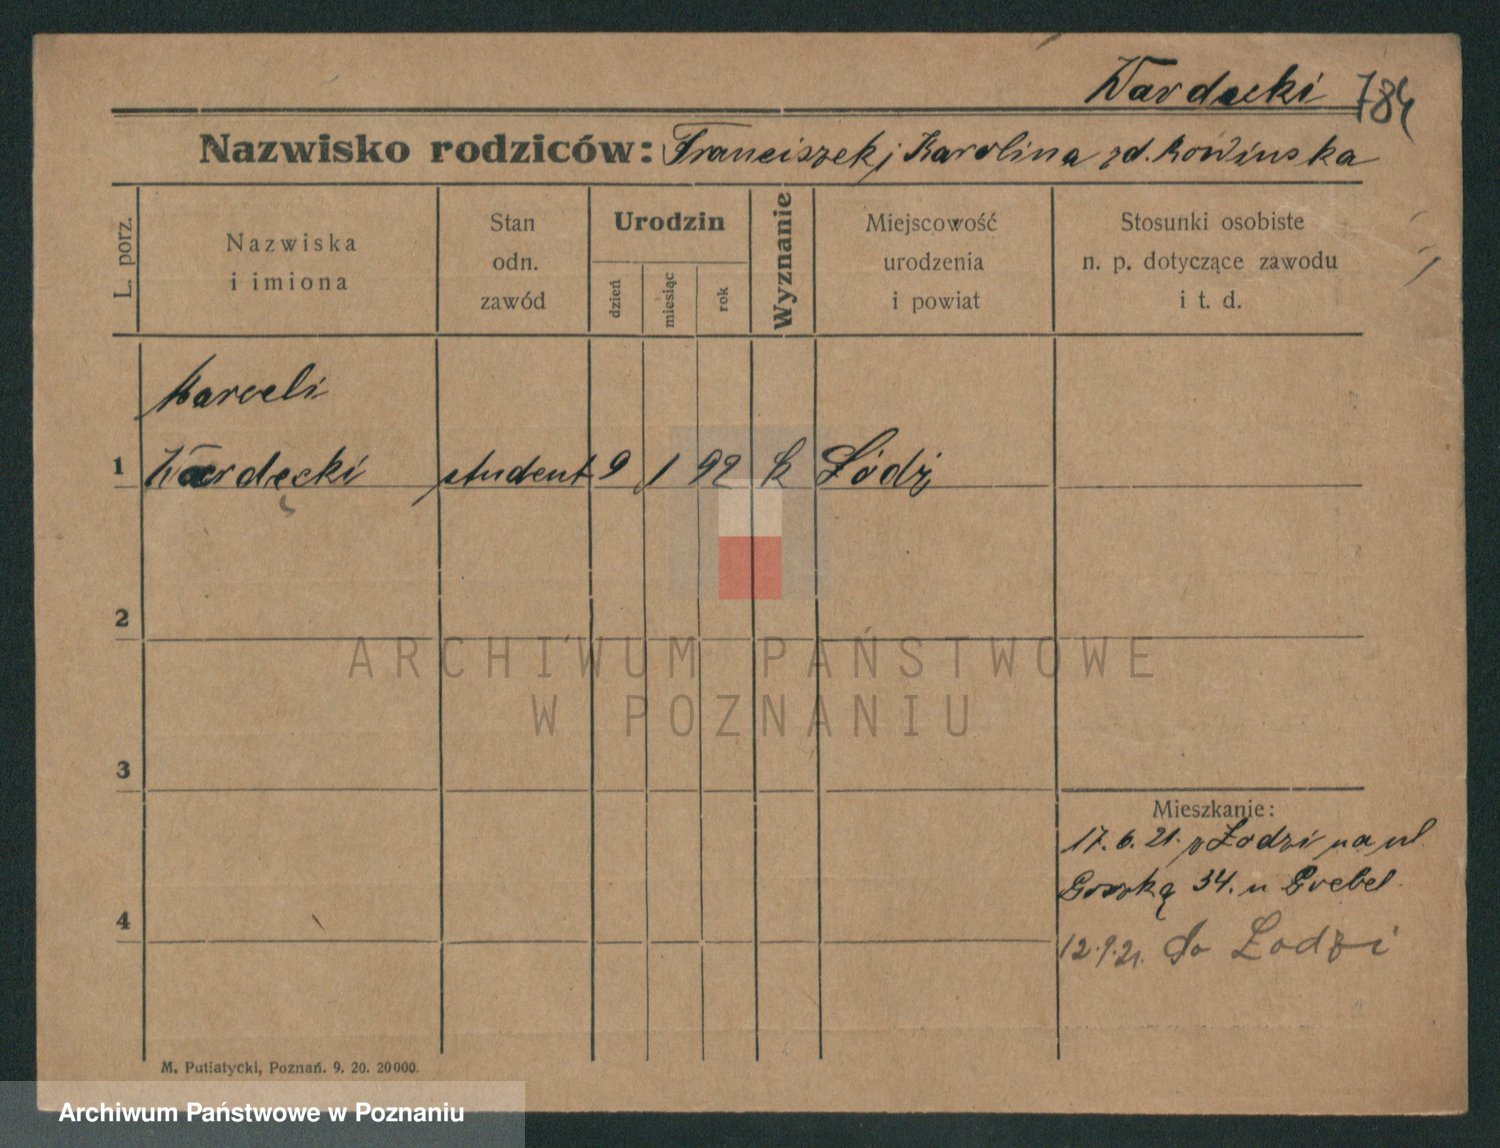 Wardęcki 784
Nazwisko rodziców: Franciszek i Karolina zd. Rowinska
L. porz.
Nazwiska
i imiona
Stan
odn.
zawód
Urodzin
dzień
miesiąc
rok
Wyznanie
Miejscowość
urodzenia
i powiat
Stosunki osobiste
n. p. dotyczące zawodu
i t. d.
Marceli
1 Wardęcki student 9 1 92 k Łódź
2
ARCHIWUM PAŃSTWOWE
W POZNANIU
3
Mieszkanie:
17. 6. 21. z Łodzi na ul.
34. u Grebel.
4
12.9.21. do Łodzi
M. Putiatycki, Poznań. 9. 20. 20000.
Archiwum Państwowe w Poznaniu